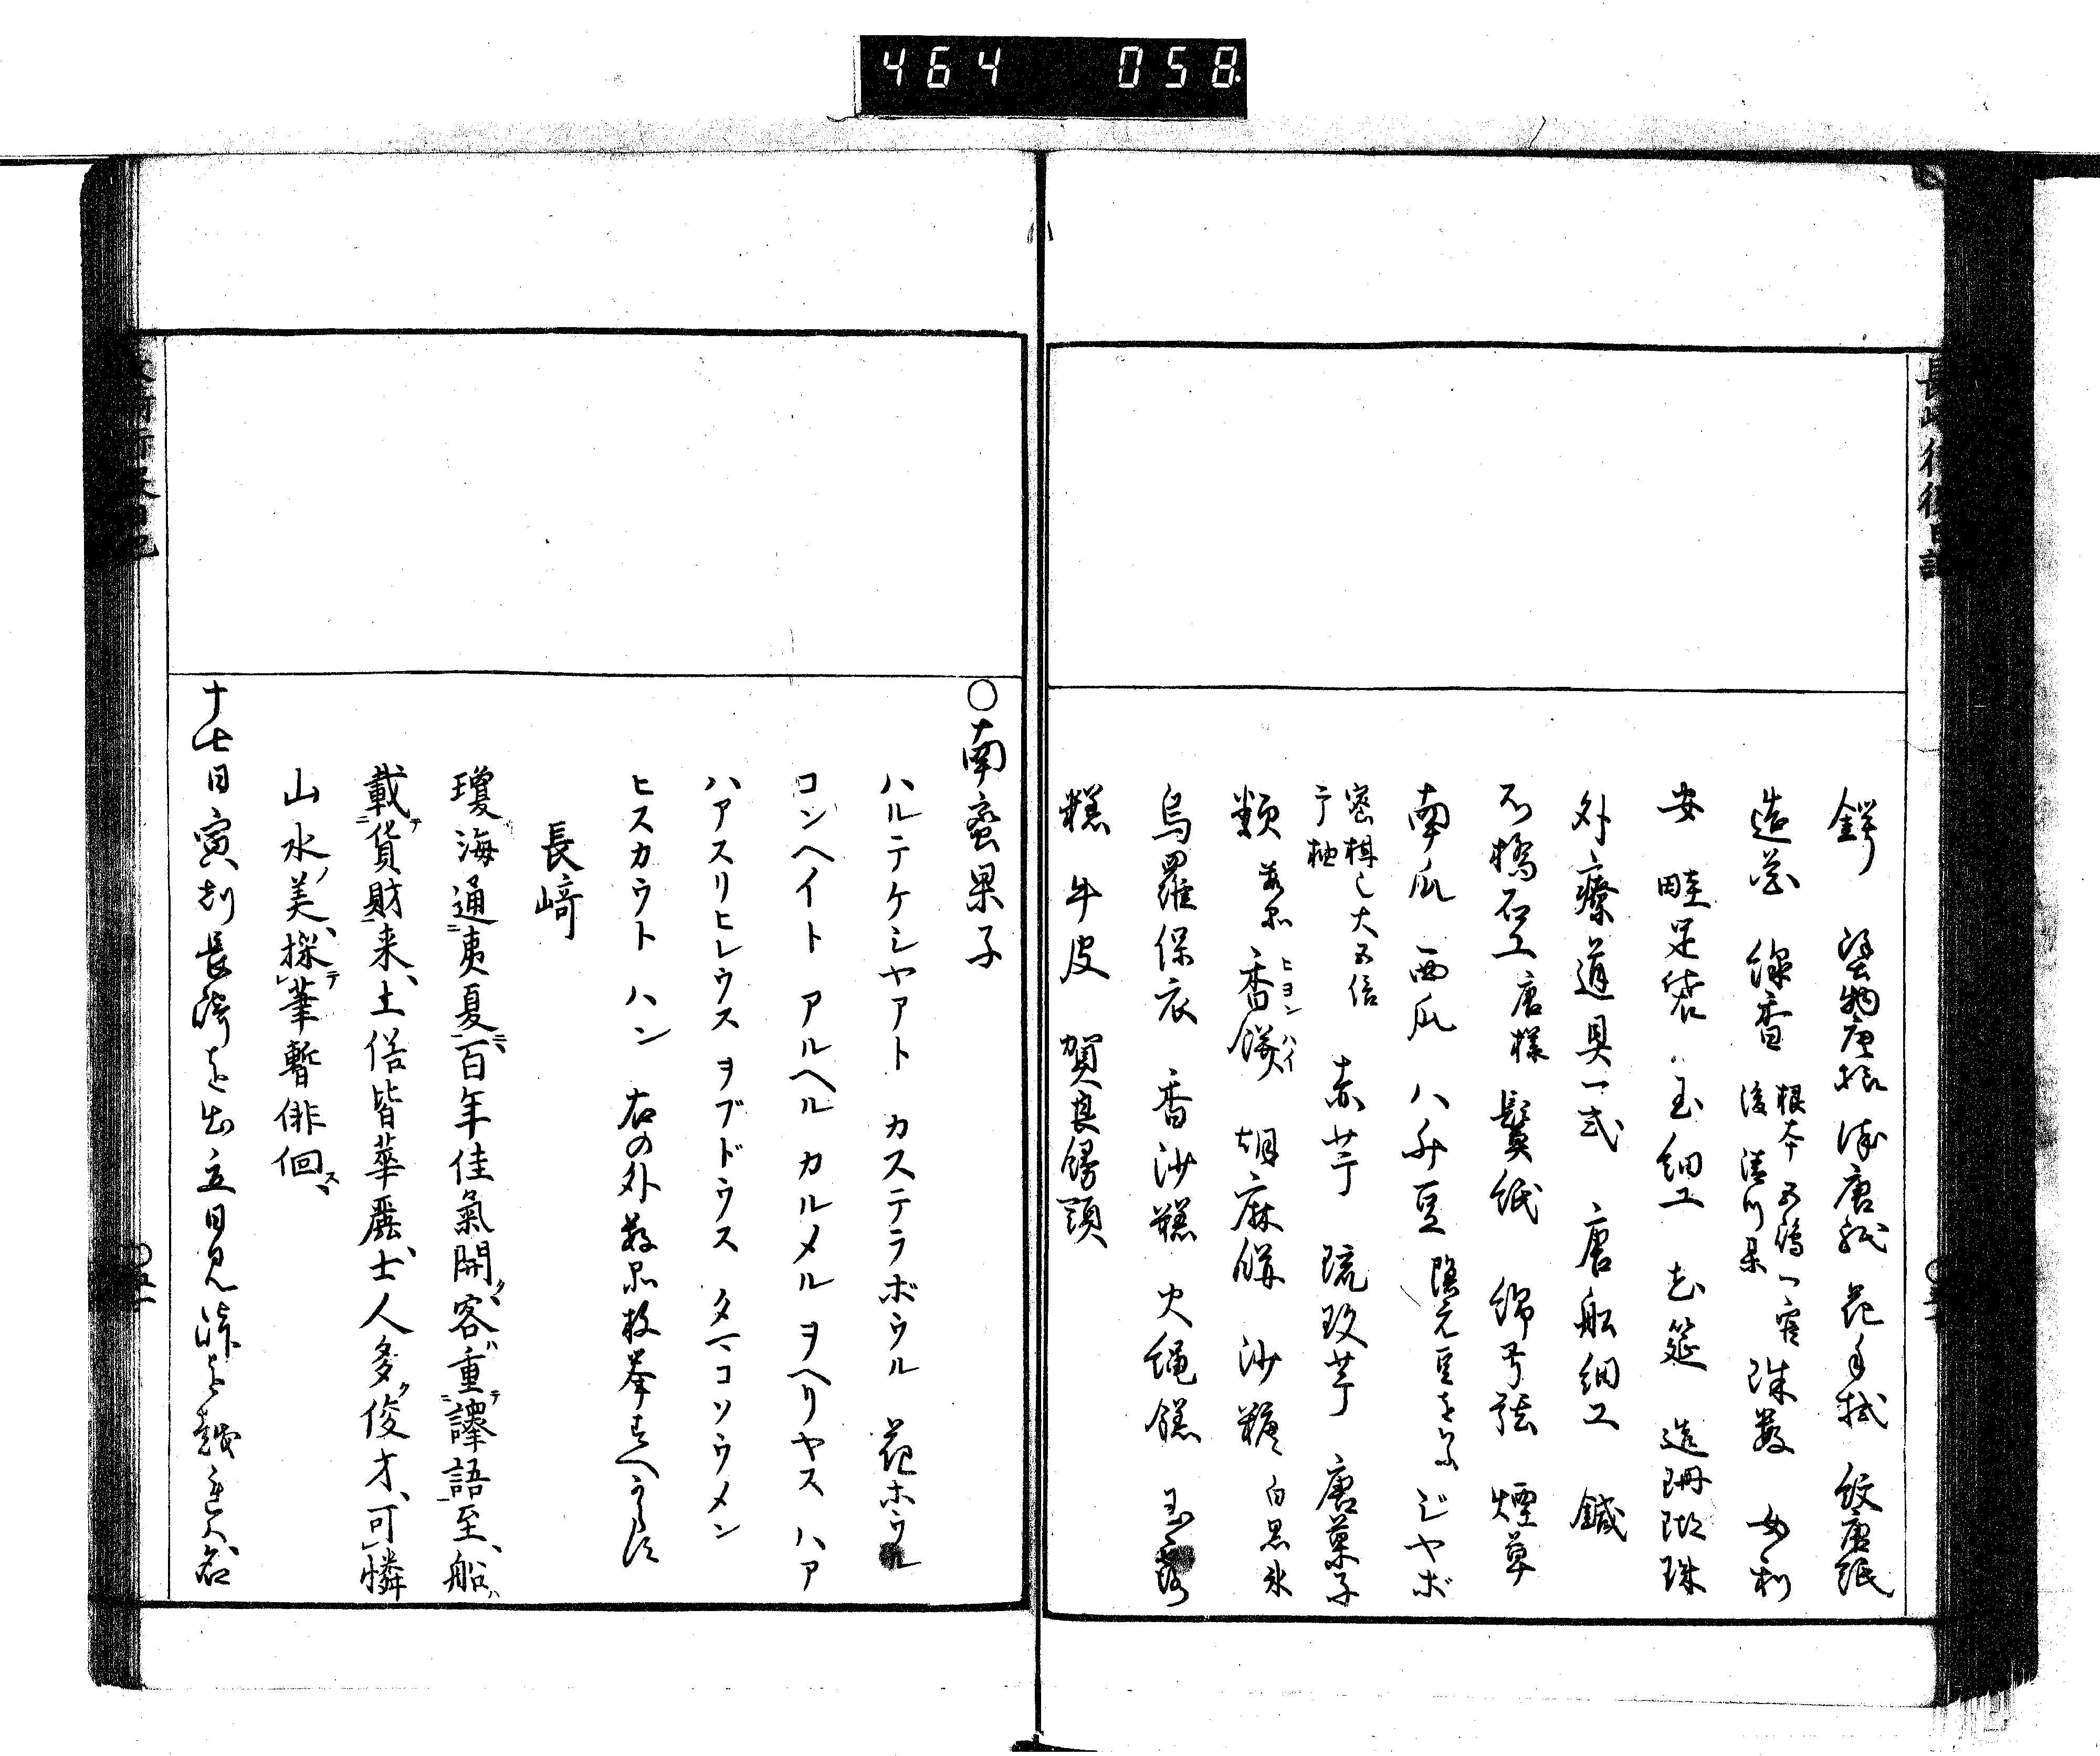 464 058
長崎行役日記
鍔 染物唐様 漆唐紙 花手拭 紋唐紙
造花 線香 根本五嶋一官 珠数 安利
安 畦足袋 玉細工 莚 造珊瑚珠
外療道具一式 唐船細工 鍼
石橋石工唐様 鬢紙 綿弓弦 煙草
南瓜 西瓜 八升豆 隠元豆を 云 ジヤボ
大五倍 赤芋 琉球芋 唐菓子
類 香餅 ヒヨンハイ 胡麻餅 沙糖 白黒氷
烏羅保衣 香沙糕 火縄糕 玉露
糕 牛皮 賀良饅頭
○南蛮果子
ハルテケシヤアト カステラボウル 花ホウル
コンヘイト アルヘル カルメル ヲヘリヤス ハア
ハアスリヒレウス ヲブドウス タマコソウメン
ヒスカウト ハン 右の外数品枚挙すへからす
長﨑
瓊海通夷夏百年佳氣開客重譯語至船
載貨財来土俗皆華麗士人多俊才可憐
山水美採筆暫俳佪
十七日寅刻長崎を出立日見峠を越